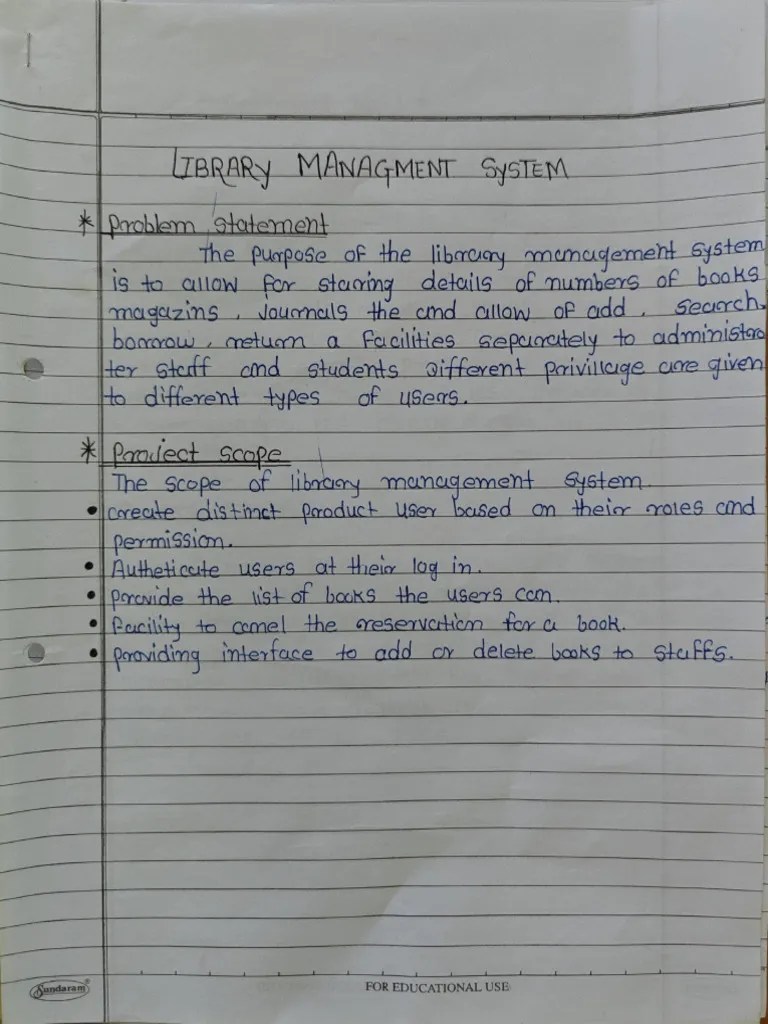 LIBRARY MANAGMENT SYSTEM
* Problem statement
The purpose of the library management system
is to allow for staring details of numbers of books
magazins, Journals the and allow of add, search,
borrow, return a facilities separately to administra
ter staff and students Different privillage are given
to different types of users.
* Project scope
The scope of library management system.
• create distinct product user based on their roles and
permission.
• Autheticate users at their log in.
• provide the list of books the users can.
• facility to camel the reservation for a book.
• providing interface to add or delete books to staffs.
Sundaram®
FOR EDUCATIONAL USE